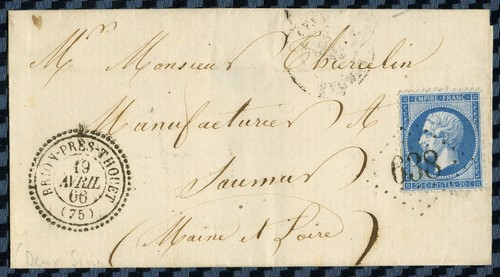 Mr Monsieur Thurcelin
Manufacturier A
Saumur
(Maine et Loire)
BRION-PRÈS-THOUET
19
AVRIL
66
(75)
EMPIRE FRANC
638
20 C POSTES 20 C